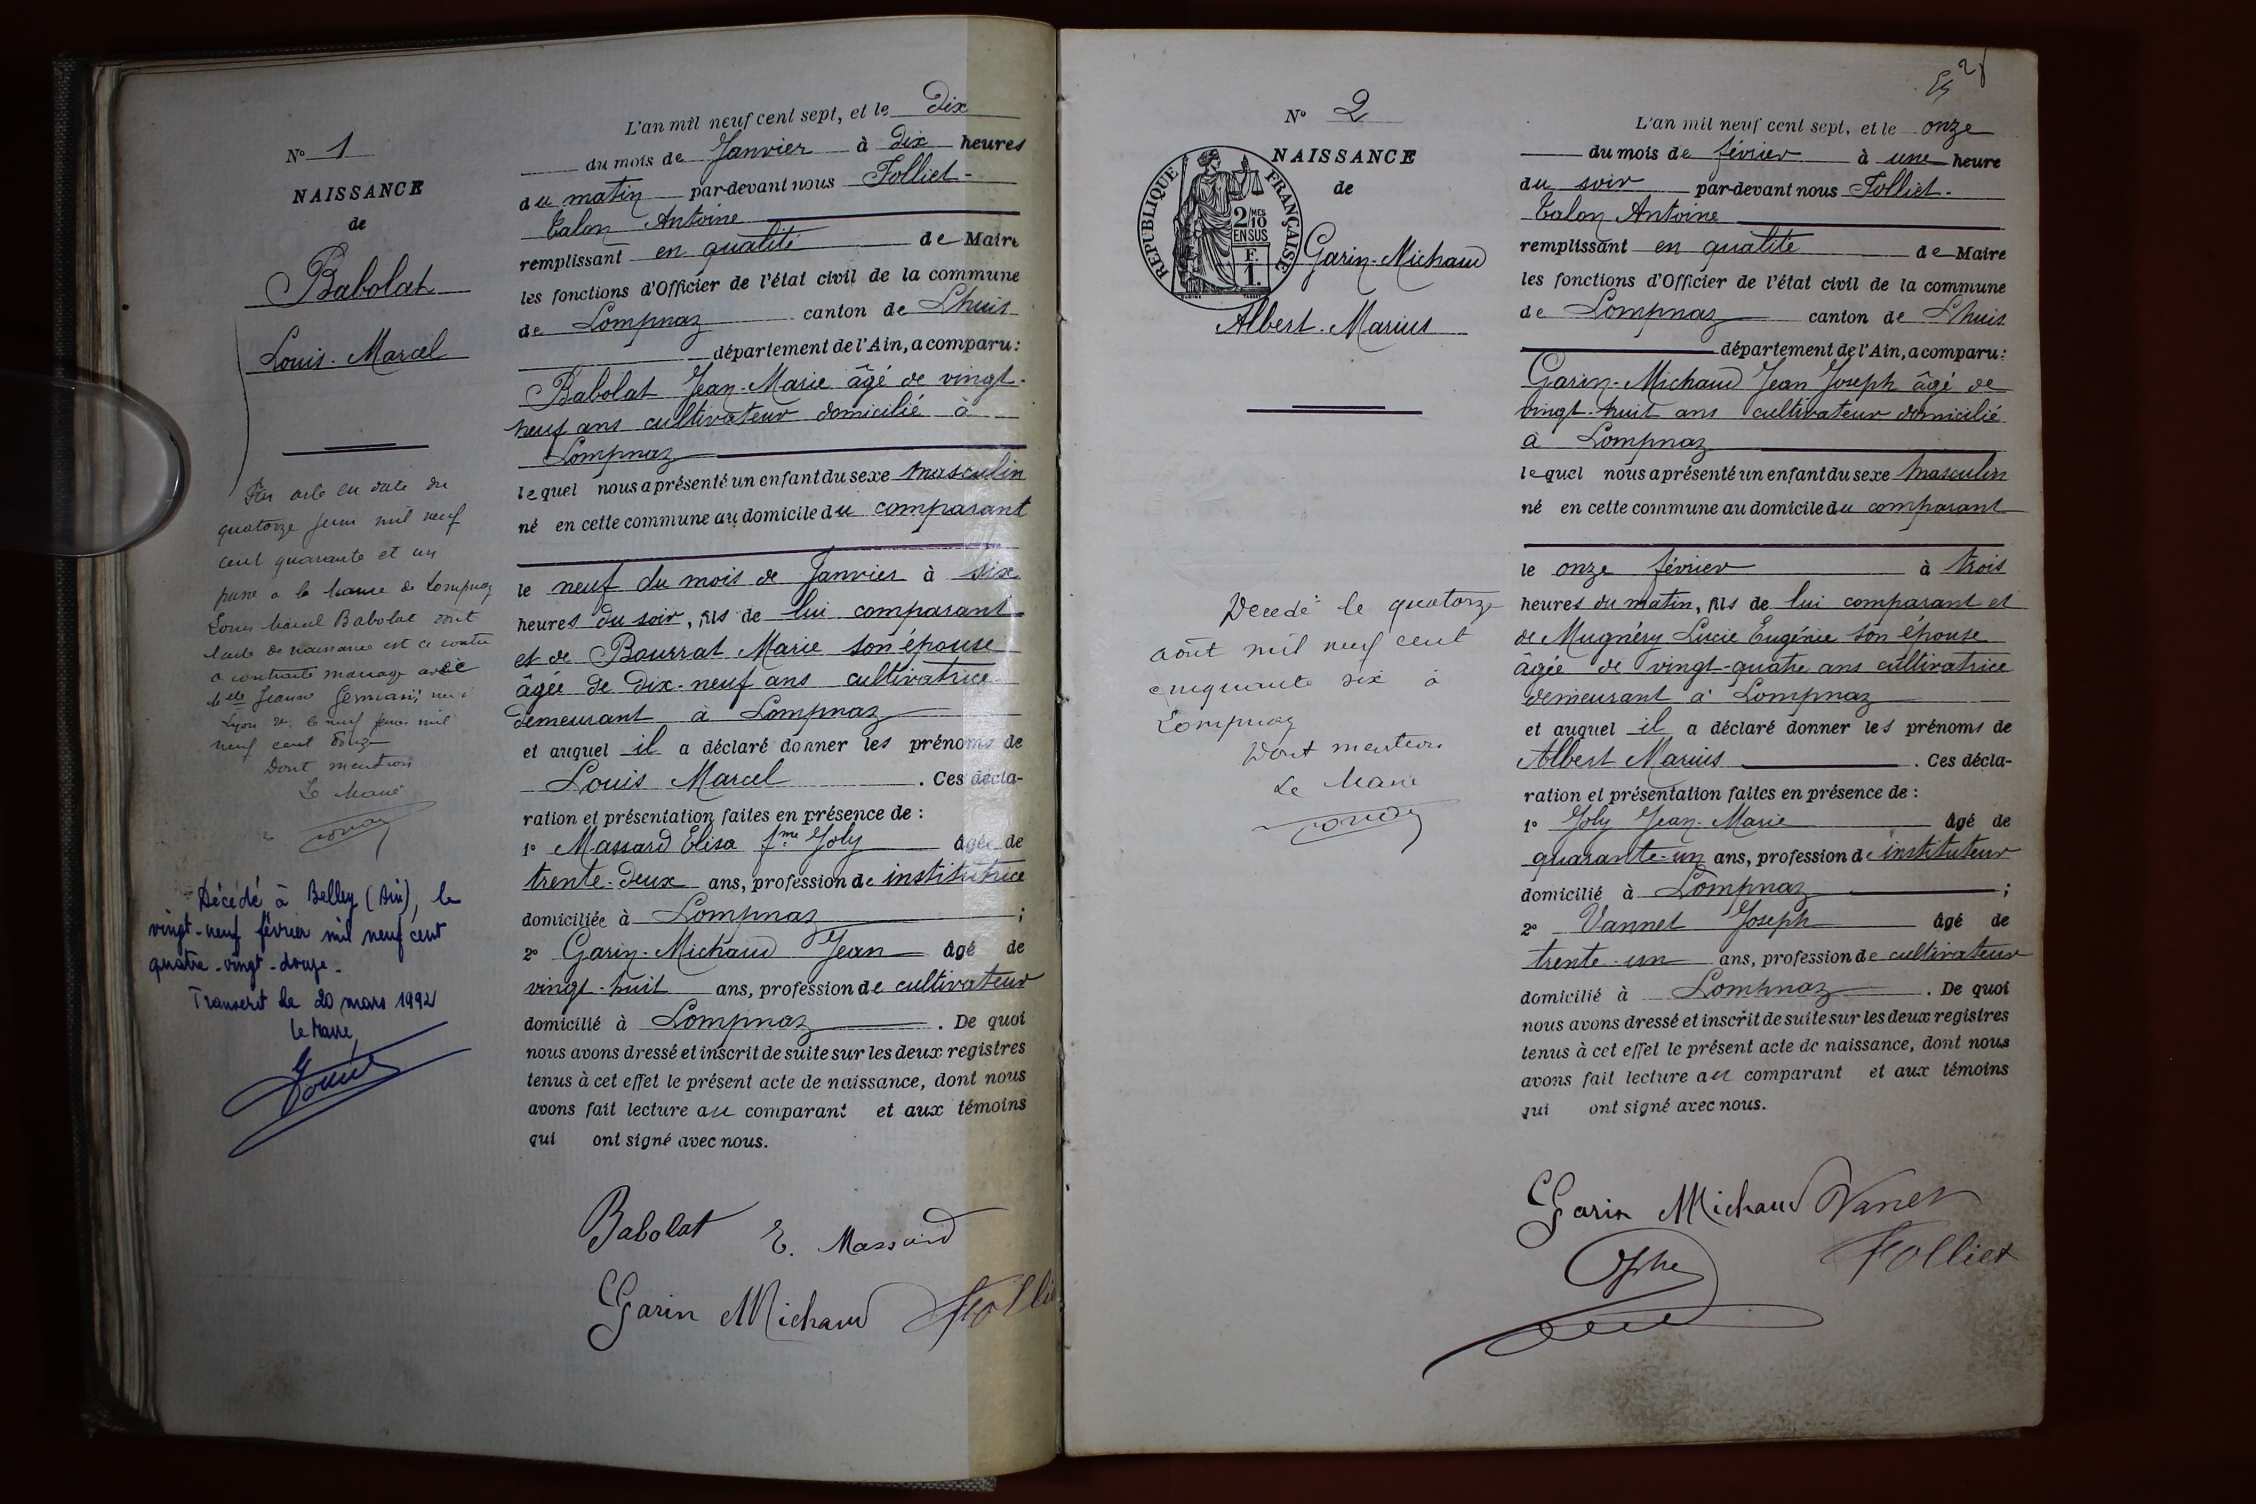 N° 1
NAISSANCE
de
Babolat
Louis-Marcel
Par acte en date du
quatorze juin mil neuf
cent quarante et un
passé à la mairie de Lompnaz
Louis Marcel Babolat dont
l'acte de naissance est ci contre
a contracté mariage avec
Melle Jeanne née à
Lyon le neuf mil
neuf cent douze
Dont mention
Le Maire
Décédé à Belley (Ain), le
vingt-neuf février mil neuf cent
quatre-vingt-douze.
Transcrit le 20 mars 1992
Le Maire,
L'an mil neuf cent sept, et le Dix
du mois de Janvier à dix heures
du matin par-devant nous Folliet-
Talon Antoine
remplissant en qualité de Maire
les fonctions d'Officier de l'état civil de la commune
de Lompnaz canton de Lhuis
département de l'Ain, a comparu:
Babolat Jean-Marie âgé de vingt-
neuf ans cultivateur domicilié à
Lompnaz
lequel nous a présenté un enfant du sexe masculin
né en cette commune au domicile du comparant
le neuf du mois de Janvier à six
heures du soir, fils de lui comparant
et de Bourrat Marie son épouse
âgée de dix-neuf ans cultivatrice
demeurant à Lompnaz
et auquel il a déclaré donner les prénoms de
Louis Marcel . Ces décla-
ration et présentation faites en présence de :
1° Massard Elisa fme Joly âgée de
trente-deux ans, profession de institutrice
domiciliée à Lompnaz ;
2° Garin-Michaud Jean âgé de
vingt-huit ans, profession de cultivateur
domicilié à Lompnaz . De quoi
nous avons dressé et inscrit de suite sur les deux registres
tenus à cet effet le présent acte de naissance, dont nous
avons fait lecture au comparant et aux témoins
qui ont signé avec nous.
Babolat E. Massard
Garin Michaud Folli
28
N° 2
NAISSANCE
de
RÉPUBLIQUE FRANÇAISE
2/10MES
EN SUS
F.
1.
Garin-Michaud
Albert-Marius
Décédé le quatorze
août mil neuf cent
cinquante six à
Lompnaz
Dont mention
Le Maire
L'an mil neuf cent sept, et le onze
du mois de février à une heure
du soir par-devant nous Folliet-
Talon Antoine
remplissant en qualité de Maire
les fonctions d'Officier de l'état civil de la commune
de Lompnaz canton de Lhuis
département de l'Ain, a comparu:
Garin-Michaud Jean Joseph âgé de
vingt-huit ans cultivateur domicilié
à Lompnaz
lequel nous a présenté un enfant du sexe masculin
né en cette commune au domicile du comparant
le onze février à trois
heures du matin, fils de lui comparant et
de Mugnéry Lucie Eugénie son épouse
âgée de vingt-quatre ans cultivatrice
demeurant à Lompnaz
et auquel il a déclaré donner les prénoms de
Albert Marius . Ces décla-
ration et présentation faites en présence de :
1° Joly Jean-Marie âgé de
quarante-un ans, profession de instituteur
domicilié à Lompnaz ;
2° Vannet Joseph âgé de
trente-un ans, profession de cultivateur
domicilié à Lompnaz . De quoi
nous avons dressé et inscrit de suite sur les deux registres
tenus à cet effet le présent acte de naissance, dont nous
avons fait lecture au comparant et aux témoins
qui ont signé avec nous.
Garin Michaud Vanet
Folliet